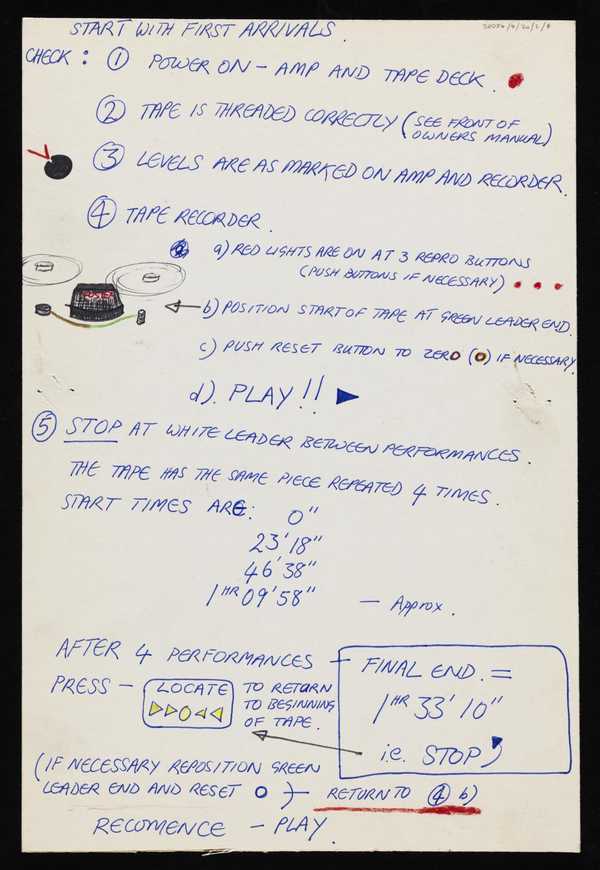 START WITH FIRST ARRIVALS.
CHECK : ① POWER ON - AMP AND TAPE DECK.
② TAPE IS THREADED CORRECTLY (SEE FRONT OF
OWNERS MANUAL)
③ LEVELS ARE AS MARKED ON AMP AND RECORDER.
④ TAPE RECORDER.
a) RED LIGHTS ARE ON AT 3 REPRO BUTTONS
(PUSH BUTTONS IF NECESSARY)
b) POSITION START OF TAPE AT GREEN LEADER END.
c) PUSH RESET BUTTON TO ZERO (0) IF NECESSARY.
d). PLAY!!
⑤ STOP AT WHITE LEADER BETWEEN PERFORMANCES.
THE TAPE HAS THE SAME PIECE REPEATED 4 TIMES.
START TIMES ARE: 0"
23'18"
46'38"
1 HR 09'58" - Approx.
AFTER 4 PERFORMANCES - FINAL END. =
1 HR 33' 10"
i.e. STOP)
PRESS - LOCATE TO RETURN
TO BEGINNING
OF TAPE.
(IF NECESSARY REPOSITION GREEN
LEADER END AND RESET 0) - RETURN TO ④ b)
RECOMENCE - PLAY.